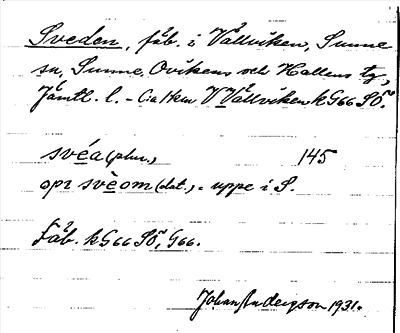 Svedan, fäb. i Vällviken, Sunne
sn, Sunne, Ovikens och Hallens tg,
Jämtl. l. – Ca 1 km V Vällviken k G66 SÖ.
svéa (plur.) 145
opr svèom (dat.) = uppe i S.
Fäb. k G66 SÖ, G66.
Johan Anderson 1931.